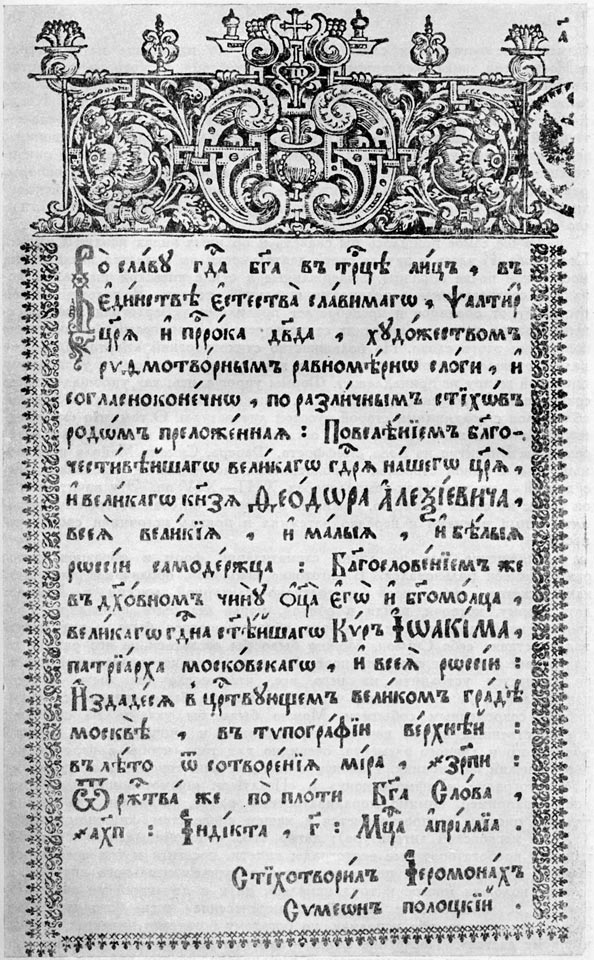 Во сла́ву гдⷭ҇а бг҃а въ трⷪ҇цѣ лицъ , въ
є҆ди́нствѣ є҆стества̀ сла́вимагѡ , ѱалти́р
цр҃ѧ̀ и҆ прⷪ҇рока дв҃да , худо́жествомъ
рѵѳмотво́рнымъ равномѣ́рнѡ сло́ги , и҆
согласноконе́чнѡ , по разли́чнымъ стїхѡ́въ
родѡ́мъ преложе́нная : Повелѣ́нїемъ бл҃го-
чести́вѣйшагѡ вели́кагѡ гдⷭ҇рѧ на́шегѡ цр҃ѧ̀ ,
и҆ вели́кагѡ кнѧ́зѧ Ѳео́дѡра Алеѯі́евича ,
всеѧ̀ вели́кїѧ , и҆ ма́лыѧ , и҆ бѣ́лыѧ
рѡссі́и самоде́ржца : Бл҃гослове́нїемъ же
въ дх҃о́вномъ чи́ну Оц҃а̀ є҆гѡ̀ и҆ бг҃омо́лца ,
вели́кагѡ гдⷭ҇на ст҃ѣ́йшагѡ Кѵ́ръ І҆ѡаки́ма ,
патрїа́рха моско́вскагѡ , и҆ всеѧ̀ рѡссі́и :
И҆здаде́сѧ в црⷭ҇твующемъ вели́комъ гра́дѣ
москвѣ̀ , въ тѵпогра́фїи ве́рхнѣй :
въ лѣ́то ѿ сотворе́нїѧ мі́ра , ҂зрп҃и :
Ѿ рⷤ҇тва́ же по пло́ти Бг҃а Сло́ва ,
҂ах҃п : І҆нді́кта , г҃ : Мцⷭ҇а апрі́ллїа .
Стїхотвори́лъ І҆еромона́хъ
Сѵмеѡ́нъ по́лоцкїй .